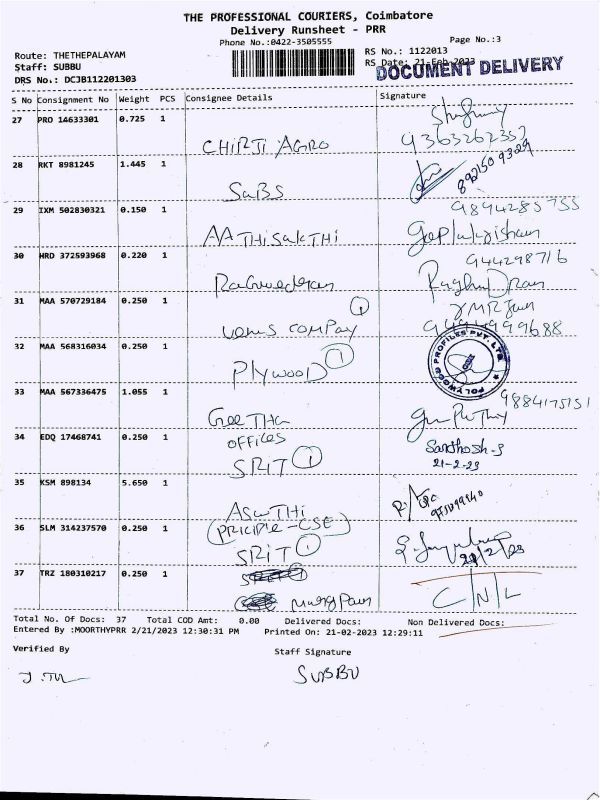 THE PROFESSIONAL COURIERS, Coimbatore
Delivery Runsheet - PRR
Phone No.:0422-3505555
Page No.:3
Route: THETHEPALAYAM
RS No.: 1122013
Staff: SUBBU
RS Date: 21-Feb-2023
DOCUMENT DELIVERY
DRS No.: DCJB112201303
S No Consignment No Weight PCS Consignee Details Signature
27 PRO 14633301 0.725 1
CHIRJI AGRO
9363262352
28 RKT 8981245 1.445 1
SaBS
29 IXM 502830321 0.150 1
9894285755
AATHISakTHi
30 HRD 372593968 0.220 1
944298716
31 MAA 570729184 0.250 1
1
venus comPay
32 MAA 568316034 0.250 1
PLYWOOD 1
POLYWOOD PROFILES PVT. LTD
33 MAA 567336475 1.055 1
GeeTHa
34 EDQ 17468741 0.250 1
OFFiCeS
SRIT 1
Santhosh-S
21-2-23
35 KSM 898134 5.650 1
ASWTHi
36 SLM 314237570 0.250 1
(PRICIPle-CSE)
SRiT 1
37 TRZ 180310217 0.250 1
C/N/L
Total No. Of Docs: 37 Total COD Amt: 0.00 Delivered Docs: Non Delivered Docs:
Entered By :MOORTHYPRR 2/21/2023 12:30:31 PM Printed On: 21-02-2023 12:29:11
Verified By
Staff Signature
SUBBU